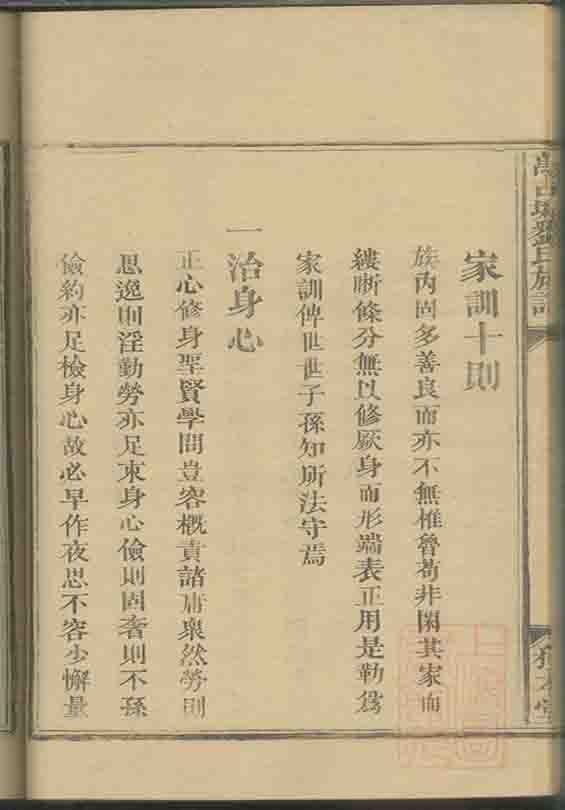 家訓十則
族內固多善良而亦不無椎魯苟非閑其家而
縷晰條分無以修厥身而形端表正用是勒爲
家訓俾世世子孫知所法守焉
一治身心
正心修身聖賢學問豈容概責諸庸衆然勞則
思逸則淫勤勞亦足束身心儉則固奢則不孫
儉約亦足檢身心故必早作夜思不容少懈量
劉氏族譜
堂